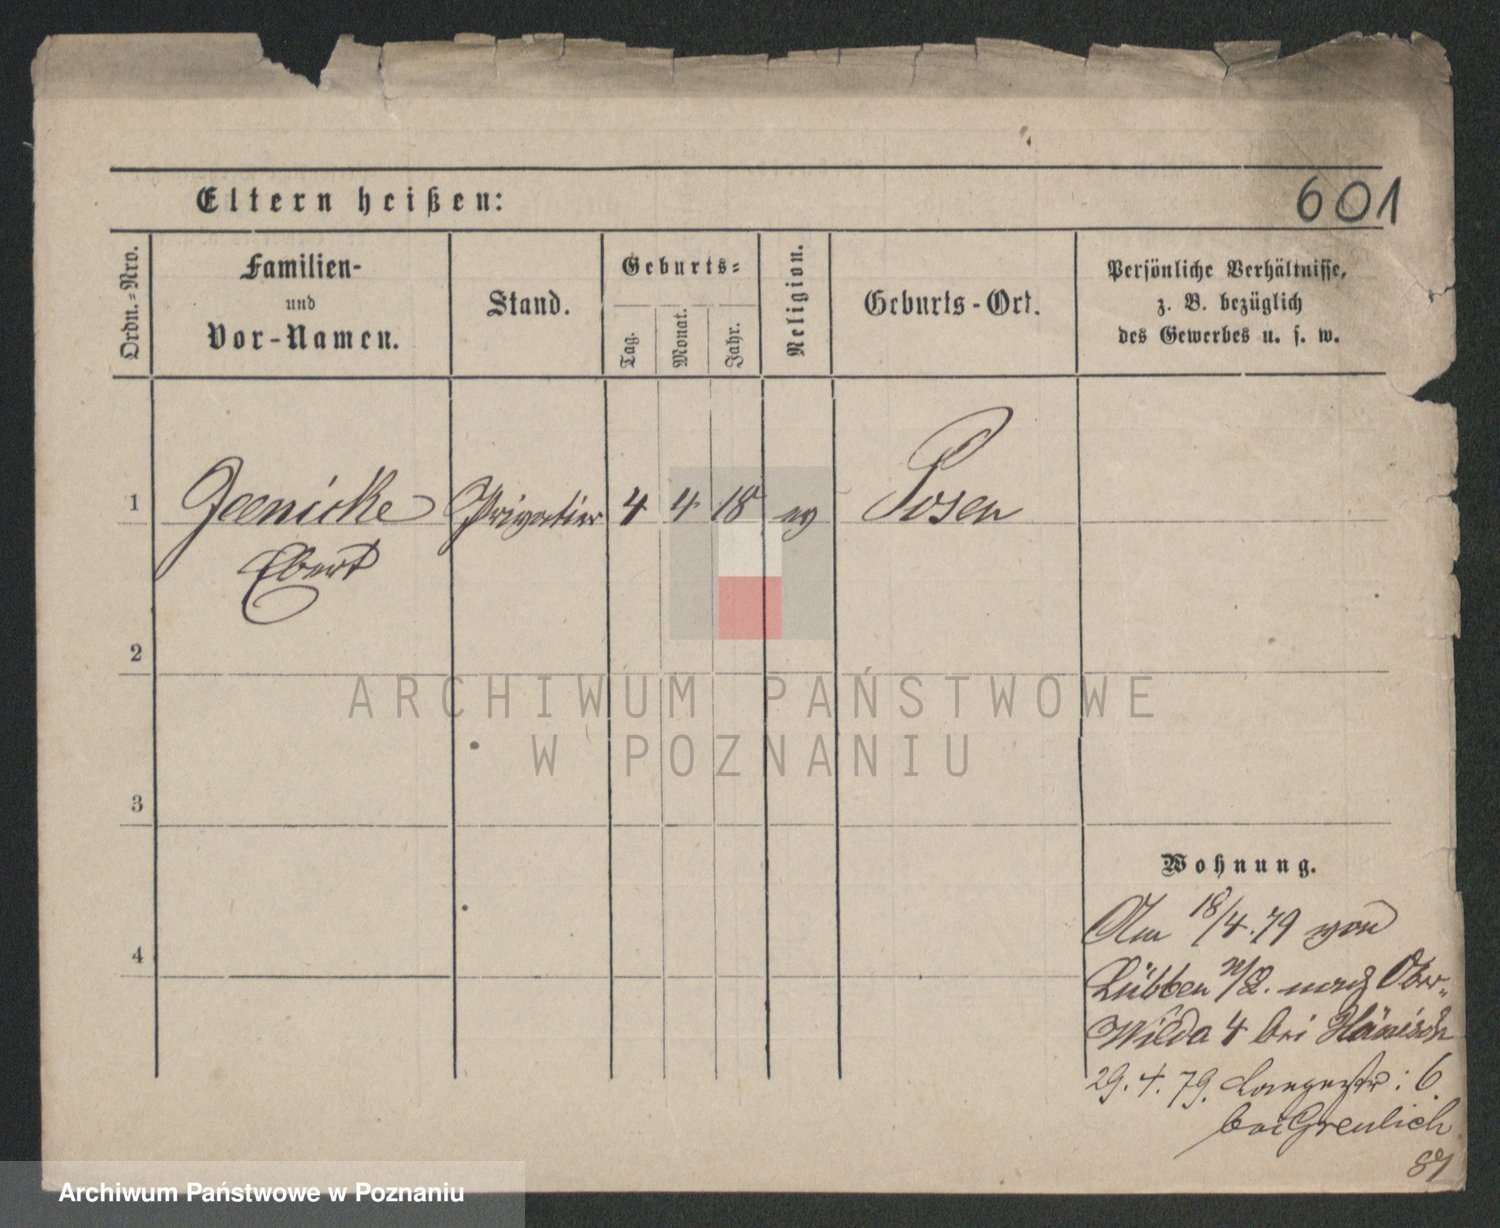 601
Eltern heißen:
Ordn.=Nro.
Familien-
und
Vor-Namen.
Stand.
Geburts=
Tag.
Monat.
Jahr.
Religion.
Geburts-Ort.
Persönliche Verhältnisse,
z. B. bezüglich
des Gewerbes u. s. w.
1
Jaenicke
Ebert
Privatier
4
4
18
ev
Posen
2
3
4
Wohnung.
Am 18/4.79 von
Lübben n/L. nach Ober-
Wilda 4 bei Hänisch
29.4.79. Langestr: 6
bei Greulich
ARCHIWUM PAŃSTWOWE
W POZNANIU
Archiwum Państwowe w Poznaniu